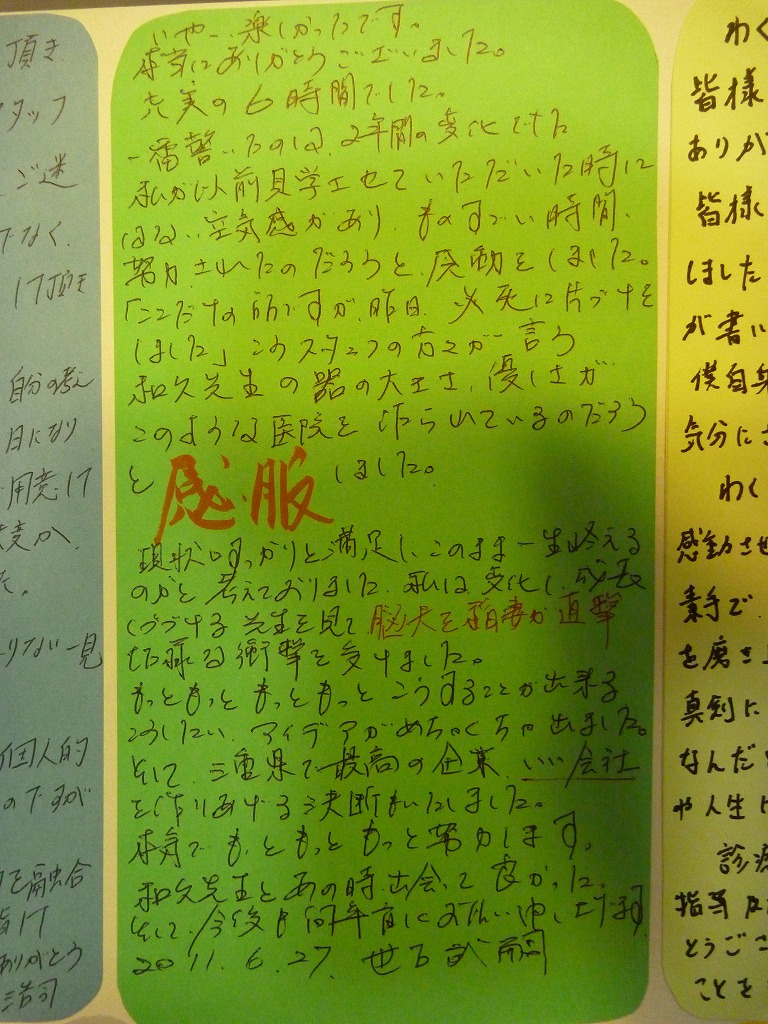 頂き
タッフ
ご迷
でなく
け頂き
自分の考え
日になり
用意け
た。
りない一見
個人的
のですが
を融合
皆け
ありがとう
浩司
いやー、楽しかったです。
本当にありがとうございました。
充実の6時間でした。
一番驚いたのは、2年間の変化でした
私が以前見学させていただいた時に
はない空気感があり、ものすごい時間、
努力されたのだろうと、感動をしました。
「ここだけの所ですが、昨日、必死に片づけを
しました」このスタッフの方々が言う
和久先生の器の大きさ、優しさが
このような医院を作られているのだろう
と感服しました。
現状にすっかりと満足し、このまま一生終える
のかと考えておりました。私は、変化し、成長
しつづける先生を見て脳天を稲妻が直撃
する様な衝撃を受けました。
もっともっともっともっとこうすることが出来る
こうしたい、アイデアがめちゃくちゃ出ました。
そして、三重県で最高の企業、いい会社
を作りあげる決断をいたしました。
本気でもっともっともっと努力します。
和久先生とあの時出会って良かった。
そして、今後も何卒宜しくお願い申し上げます
2011.6.27.
わく
皆様
ありが
皆様
しました
が書い
僕自身
気分にさ
わく
感動させ
素手で
を磨き上
真剣に
なんだ
や人生に
診療
指導及
とうござ
ことを